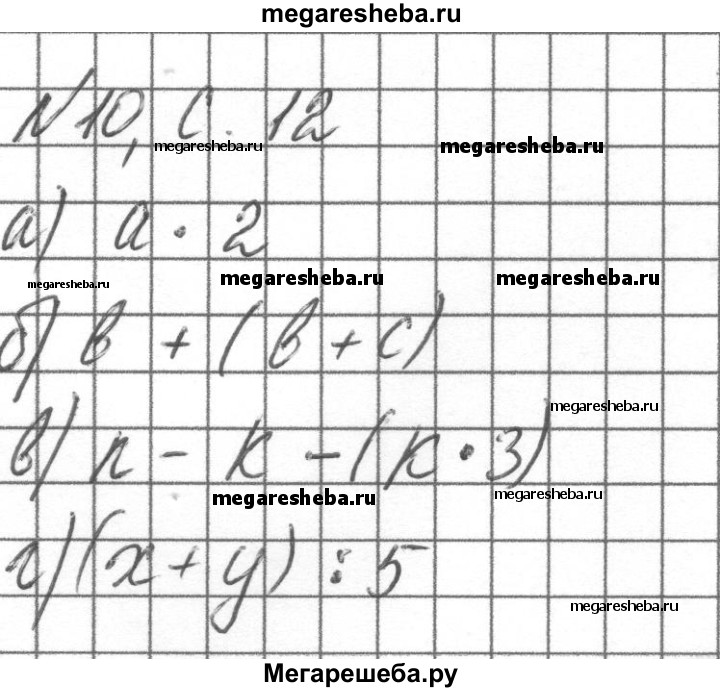 megaresheba.ru
№10, с. 12
megaresheba.ru megaresheba.ru
а) a · 2
megaresheba.ru megaresheba.ru megaresheba.ru
б) b + (b + c)
megaresheba.ru
в) n - k - (k · 3)
megaresheba.ru megaresheba.ru
г) (x + y) : 5
megaresheba.ru
Мегарешеба.ру